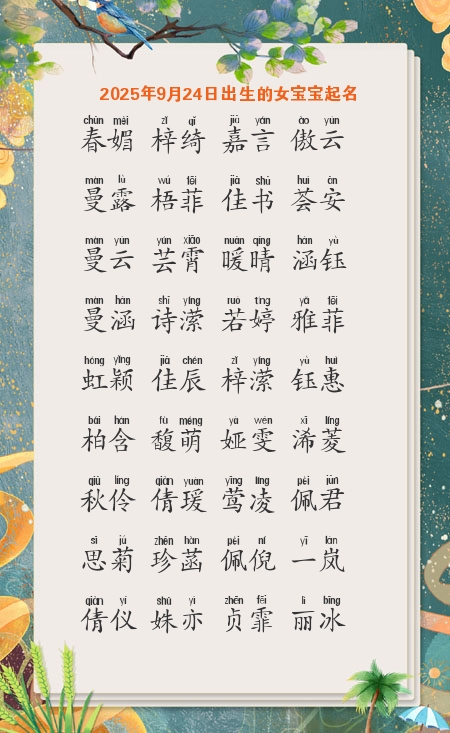 2025年9月24日出生的女宝宝起名
chūn mèi zǐ qǐ jiā yán ào yún
春媚 梓绮 嘉言 傲云
màn lù wú fēi jiā shū huì ān
曼露 梧菲 佳书 荟安
màn yún yún xiāo nuǎn qíng hán yù
曼云 芸霄 暖晴 涵钰
màn hán shī yíng ruò tíng yǎ fēi
曼涵 诗潆 若婷 雅菲
hóng yǐng jiā chén zǐ yíng yù huì
虹颖 佳辰 梓潆 钰惠
bǎi hán fù méng yà wén xī líng
柏含 馥萌 娅雯 浠菱
qiū líng qiàn yuàn yīng líng pèi jūn
秋伶 倩瑗 莺凌 佩君
sī jú zhēn hàn pèi ní yī lán
思菊 珍菡 佩倪 一岚
qiàn yí shū yì zhēn fēi lì bīng
倩仪 姝亦 贞霏 丽冰